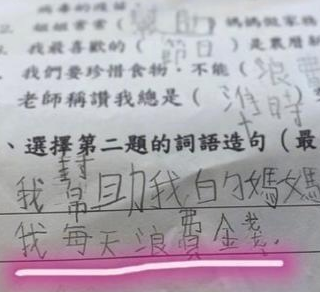 病毒的
2. 姐姐常常(幫助)媽媽做家務
我最喜歡的(節日)是農曆
我們要珍惜食物,不能(浪費
老師稱讚我總是(準時)
、選擇第二題的詞語造句(最
我幫助我的媽媽
我每天浪費金錢。